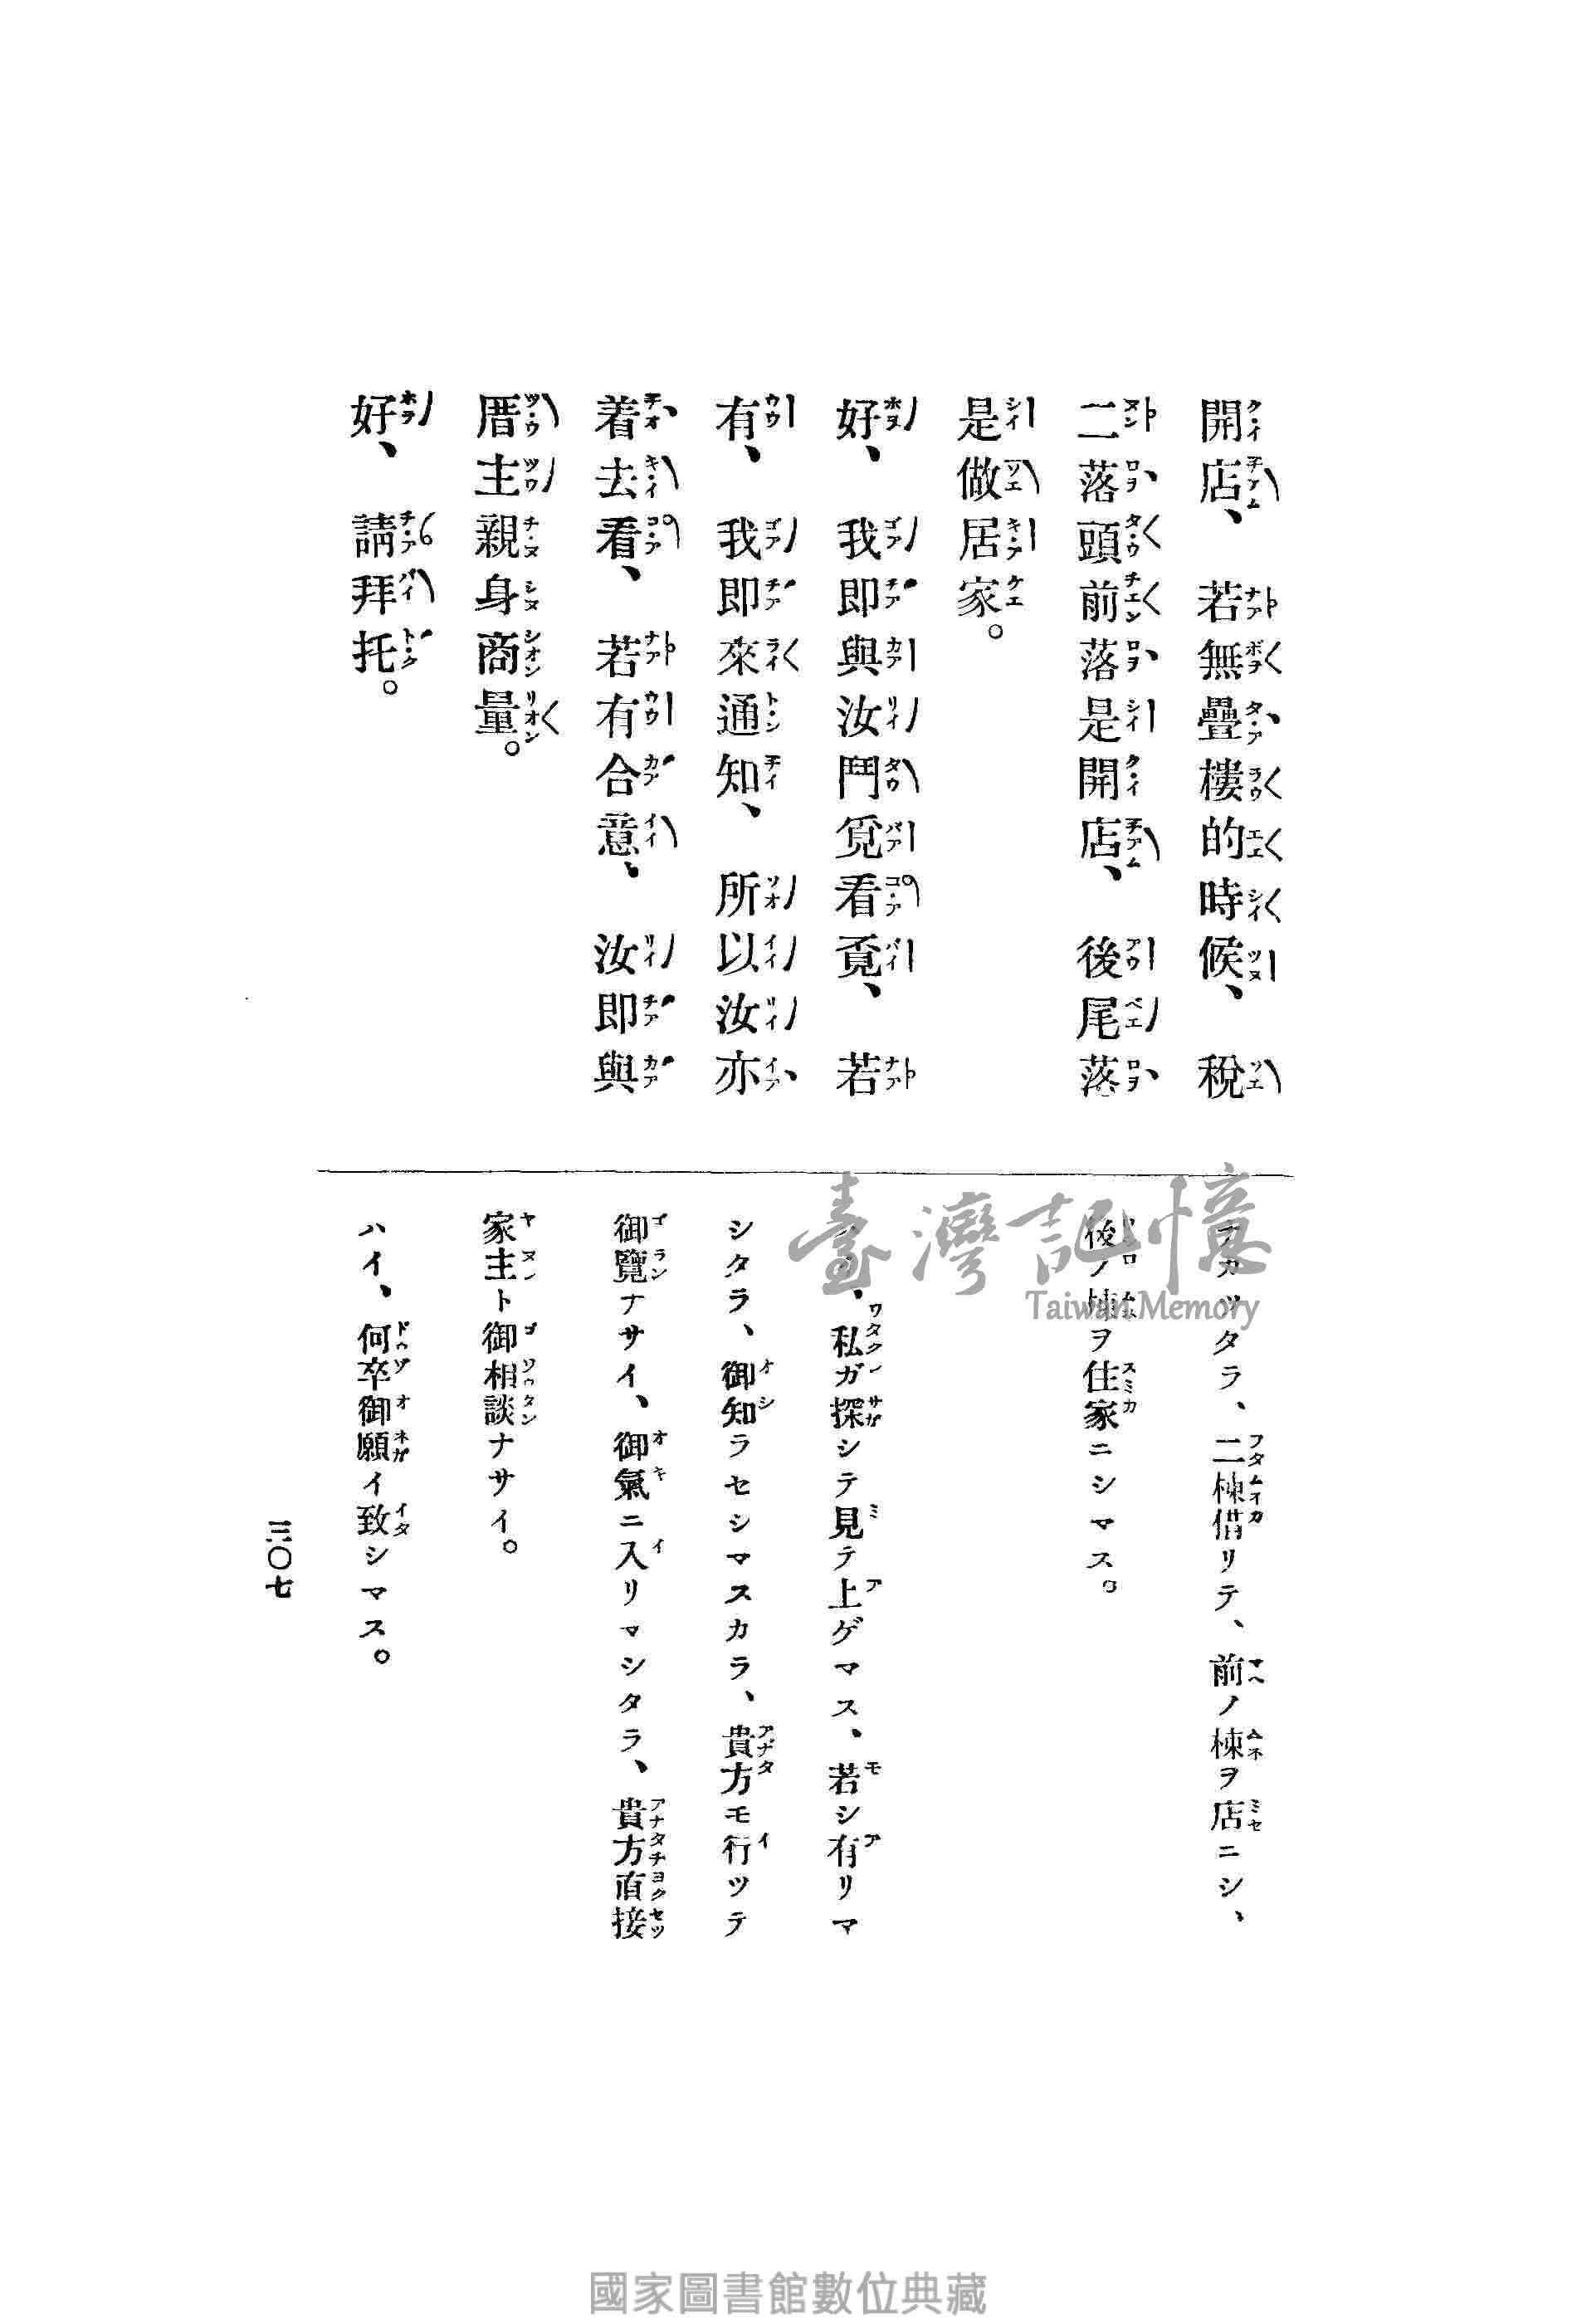 開店、若無疊樓的時候、稅
二落頭前落是開店、後尾落
是做居家。
好、我即與汝鬥覓看覔、若
有、我即來通知、所以汝亦
着去看、若有合意、汝即與
厝主親身商量。
好、請拜托。
カツタラ、二棟借リテ、前ノ棟ヲ店ニシ、
後ノ棟ヲ住家ニシマス。
、私ガ探シテ見テ上ゲマス、若シ有リマ
シタラ、御知ラセシマスカラ、貴方モ行ツテ
御覽ナサイ、御氣ニ入リマシタラ、貴方直接
家主ト御相談ナサイ。
ハイ、何卒御願イ致シマス。
三〇七
臺灣記憶
Taiwan Memory
國家圖書館數位典藏